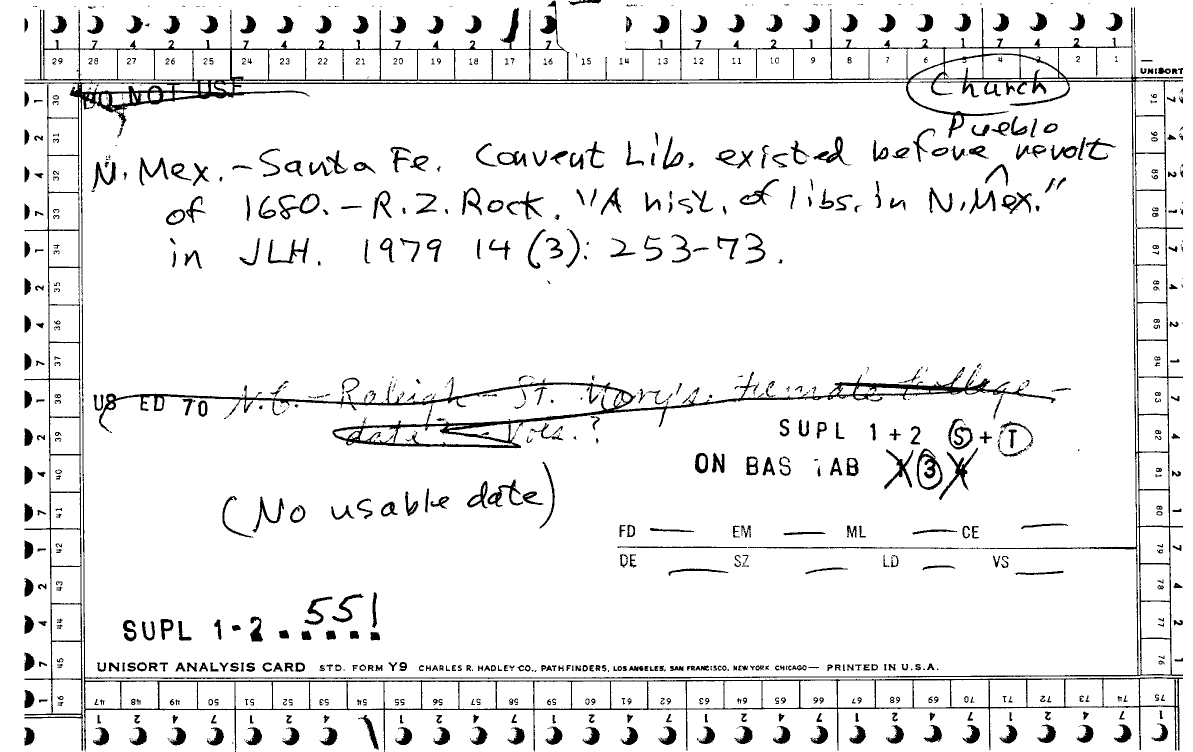 7 4 2 1 7 4 2 1 7 4 2 1 7 1 7 4 2 1 7 4 2 1
29 28 27 26 25 24 23 22 21 20 19 18 17 16 15 14 13 12 11 10 9 8 7 6 5 4 3 2 1
UNISORT
DO NOT USE
Church
Pueblo
N. Mex. - Santa Fe. Convent Lib. existed before ^ revolt
of 1680. - R. Z. Rock. "A hist. of libs. in N. Mex."
in JLH. 1979 14 (3): 253-73.
US ED 70 N.C. - Raleigh - St. Mary's. Female College -
date? - Vols.?
SUPL 1 + 2 S + T
ON BAS TAB 1 3 4
(No usable date)
FD EM ML CE
DE SZ LD VS
SUPL 1-2 . . . . . 551
UNISORT ANALYSIS CARD STD. FORM Y9 CHARLES R. HADLEY CO., PATHFINDERS, LOS ANGELES, SAN FRANCISCO, NEW YORK CHICAGO — PRINTED IN U.S.A.
30 31 32 33 34 35 36 37 38 39 40 41 42 43 44 45 46
91 90 89 88 87 86 85 84 83 82 81 80 79 78 77 76
47 48 49 50 51 52 53 54 55 56 57 58 59 60 61 62 63 64 65 66 67 68 69 70 71 72 73 74 75